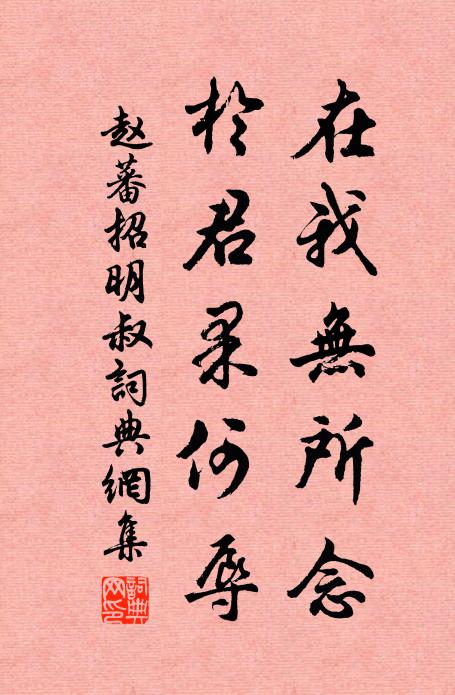 在我無所念
於君果何辱
赵蕃招明叔詞典網集
詞典網印